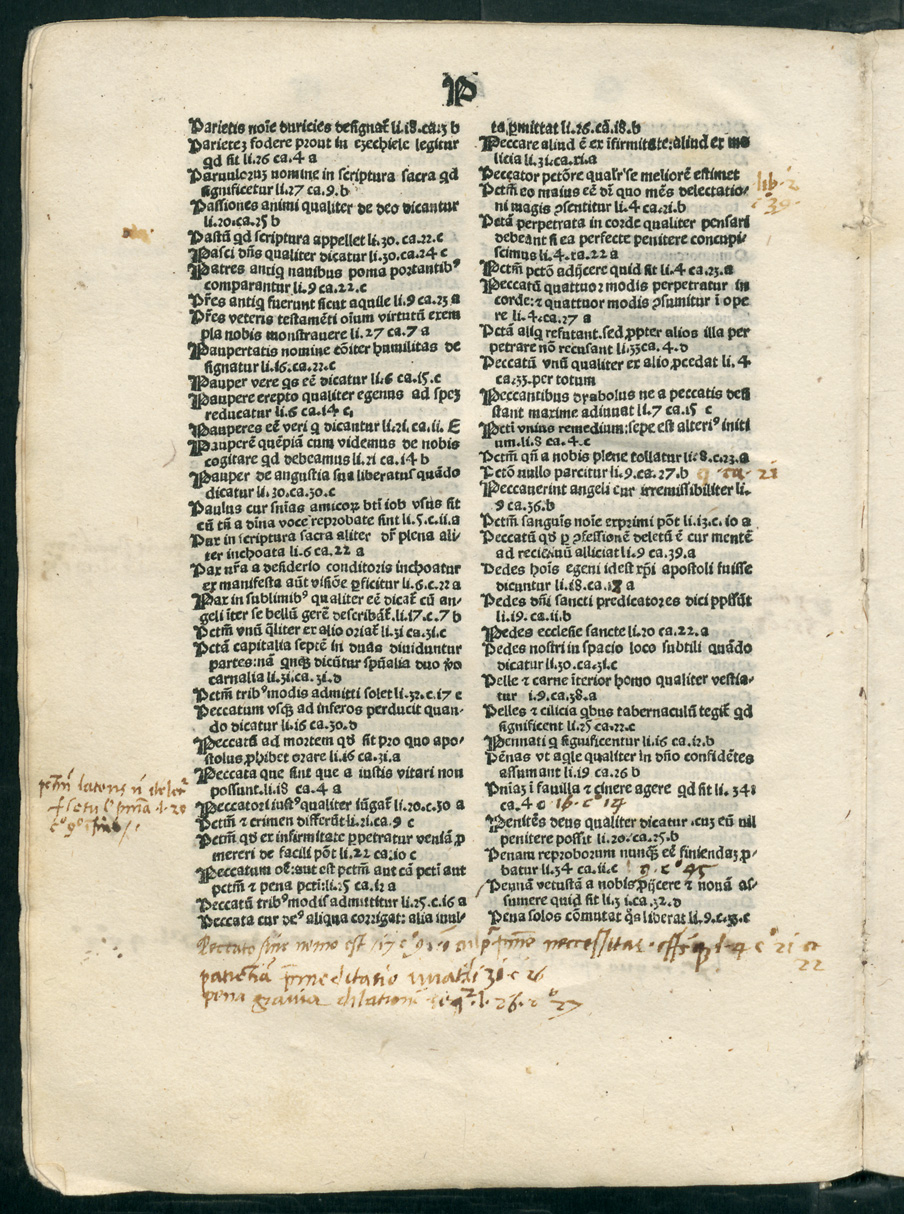 P
Parietis noīe duricies designat̄ li.18.ca.3 b
Parietē fodere prout in ezechiele legitur
qd sit li.26 ca.4 a
Paruulorum nomine in scriptura sacra qd
significetur li.27 ca.9.b
Passiones animi qualiter de deo dicantur
li.20.ca.25 b
Pastū qd scriptura appellet li.30.ca.22.c
Pasci dn̄s qualiter dicatur li.30.ca.24 c
Patres antiq nauibus poma portantibꝰ
comparantur li.9 ca.22.c
Pr̄es antiq fuerunt sicut aquile li.9 ca.23 a
Pr̄es veteris testamēti oīum virtutū exem
pla nobis monstrauere li.27 ca.7 a
Paupertatis nomine cōiter humilitas de
signatur li.16.ca.22.c
Pauper vere qs eē dicatur li.6 ca.15.c
Paupere erepto qualiter egenus ad spez
reducatur li.6 ca.14 c.
Pauperes eē veri q dicantur li.21.ca.11. E
Pauperē quēpiā cum videmus de nobis
cogitare qd debeamus li.21 ca.14 b
Pauper de angustia sua liberatus quādo
dicatur li.30.ca.30.c
Paulus cur sn̄ias amicoꝝ bt̄i iob vsus sit
cū tn̄ a diuina voce reprobate sint li.5.c.11.a
Pax in scriptura sacra aliter dr̄ plena ali-
ter inchoata li.6 ca.22 a
Pax nr̄a a desiderio conditoris inchoatur
ex manifesta aūt visiōe ꝑficitur li.6.c.22 a
Pax in sublimibꝰ qualiter eē dicat̄ cū an-
geli īter se bellū gerē describāt̄.li.17.c.7 b
Pctm̄ vnū qliter ex alio oriat̄ li.31 ca.31.c
Pctā capitalia septē in duas diuiduntur
partes:nā qnqꝫ dicūtur spūalia duo ꝟo
carnalia li.31.ca.31.d
Pctm̄ tribꝰ modis admitti solet li.32.c.17 e
Peccatum vsqꝫ ad inferos perducit quan-
do dicatur li.16 ca.30.d
Peccatū ad mortem qd sit pro quo apo-
stolus ꝓhibet orare li.16 ca.31.a
Peccata que sint que a iustis vitari non
possunt.li.18 ca.4 a
Peccatori iustꝰ qualiter iūgat̄ li.20.c.30 a
Pctm̄ ⁊ crimen differūt li.21.ca.9 c
Pctm̄ qd ex infirmitate ꝑpetratur veniā ꝓ
mereri de facili pōt li.22 ca.10 c
Peccatum oē:aut est pctm̄ aut cā pcti aut
pctm̄ ⁊ pena pcti:li.25 ca.12 a
Peccatū tribꝰ modis admittitur li.25.c.16 a
Peccata cur deꝰ aliqua corrigat: alia inul-
ta ꝑmittat li.26.cā.18.b
Peccare aliud ē ex īfirmitate:aliud ex ma
licia li.31.ca.xi.a
Peccator petōre qualr̄ se meliorē estimet
Pctm̄ eo maius eē dr̄ quo mēs delectatio-
ni magis ꝯsentitur li.4 ca.21.b
Pctā perpetrata in corde qualiter pensari
debeant si ea perfecte penitere concupi-
scimus li.4.ca.22 a
Pctm̄ pctō adijcere quid sit li.4 ca.23.a
Peccatū quattuor modis perpetratur in
corde:⁊ quattuor modis ꝯsumitur ī ope
re li.4.ca.27 a
Pctā aliq refutant.sed ꝓpter alios illa per
petrare nō recusant li.33ca.4.d
Peccatū vnū qualiter ex alio ꝓcedat li.4
ca.33.per totum
Peccantibus dyabolus ne a peccatis desi
stant maxime adiuuat li.7 ca.15 c
Pcti vnius remedium:sepe est alteriꝰ initi
um.li.8 ca.4.c
Pctm̄ qn̄ a nobis plene tollatur li.8.c.23.a
Pctō nullo parcitur li.9.ca.27.b
Peccauerint angeli cur irremissibiliter li.
9 ca.36.b
Pctm̄ sanguīs noīe exprimi pōt li.13.c.10 a
Peccatū qd ꝑ ꝯfessionē deletū ē cur mentē
ad recidiuū alliciat li.9 ca.39.a
Pedes hoīs egeni idest xp̄i apostoli fuisse
dicuntur li.18.ca.13 a
Pedes dn̄i sancti predicatores dici pn̄t
li.19.ca.11.b
Pedes ecclesie sancte li.20 ca.22.a
Pedes nostri in spacio loco subtili quādo
dicatur li.30.ca.31.c
Pelle ⁊ carne īterior homo qualiter vestia-
tur i.9.ca.38.a
Pelles ⁊ cilicia qbus tabernaculū tegit̄ qd
significent li.25 ca.22.c
Pennati q significentur li.16 ca.12.b
Pēnas vt aqle qualiter in dn̄o confidētes
assumant li.19 ca.26 b
Pn̄iaꝫ ī fauilla ⁊ cinere agere qd sit li. 34.
ca.4 c 16. c° 14
Penitēs deus qualiter dicatur .cuꝫ eū nil
penitere possit li.20.ca.25.b
Penam reproborum nunqꝫ eē finiendaꝫ ꝓ-
batur li.34 ca.11.c 9. c° 45
Pennā vetustā a nobis ꝓijcere ⁊ nouā as-
sumere quid sit li.31.ca.32.d
Pena solos cōmutat qs liberat li.9.c.33.c
lib. 2
c° 39.
9. ca. 21
l. 20
Peccato sine nemo est
l. 4 c° 21 et
22
31. c 26
pena grauia
l. 26. c° 27